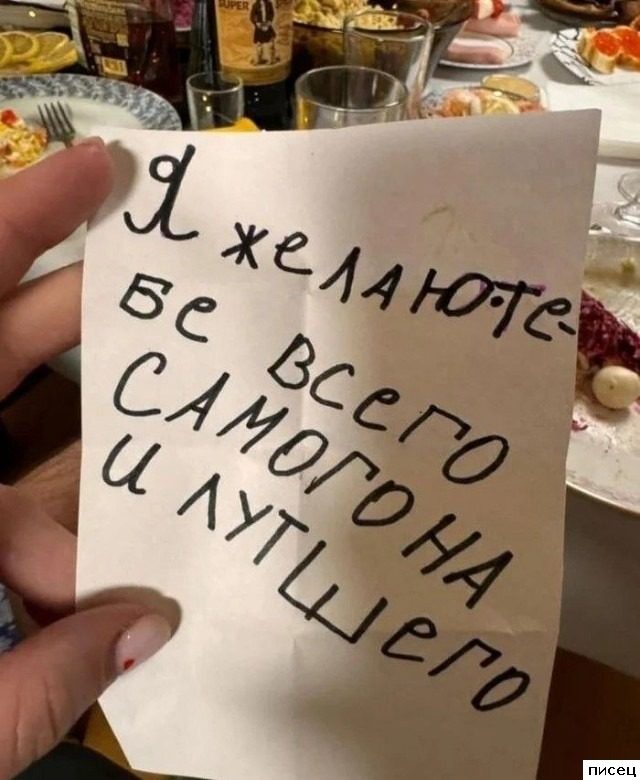 SUPER
Я желаю те-
бе всего
САМОГОНА
и лутшего
писец